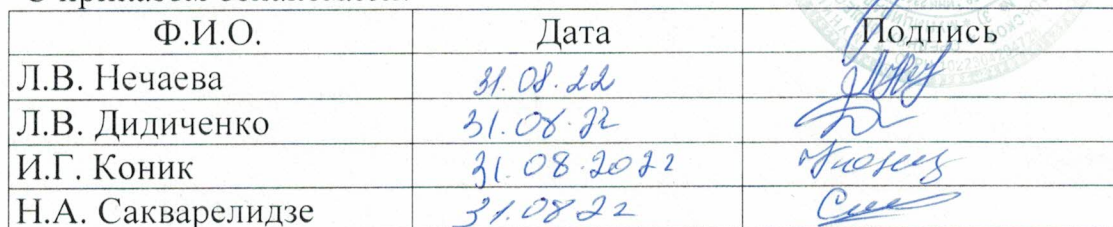 Ф.И.О. Дата Подпись
Л.В. Нечаева 31.08.22
Л.В. Дидиченко 31.08.22
И.Г. Коник 31.08.2022
Н.А. Сакварелидзе 31.08.22